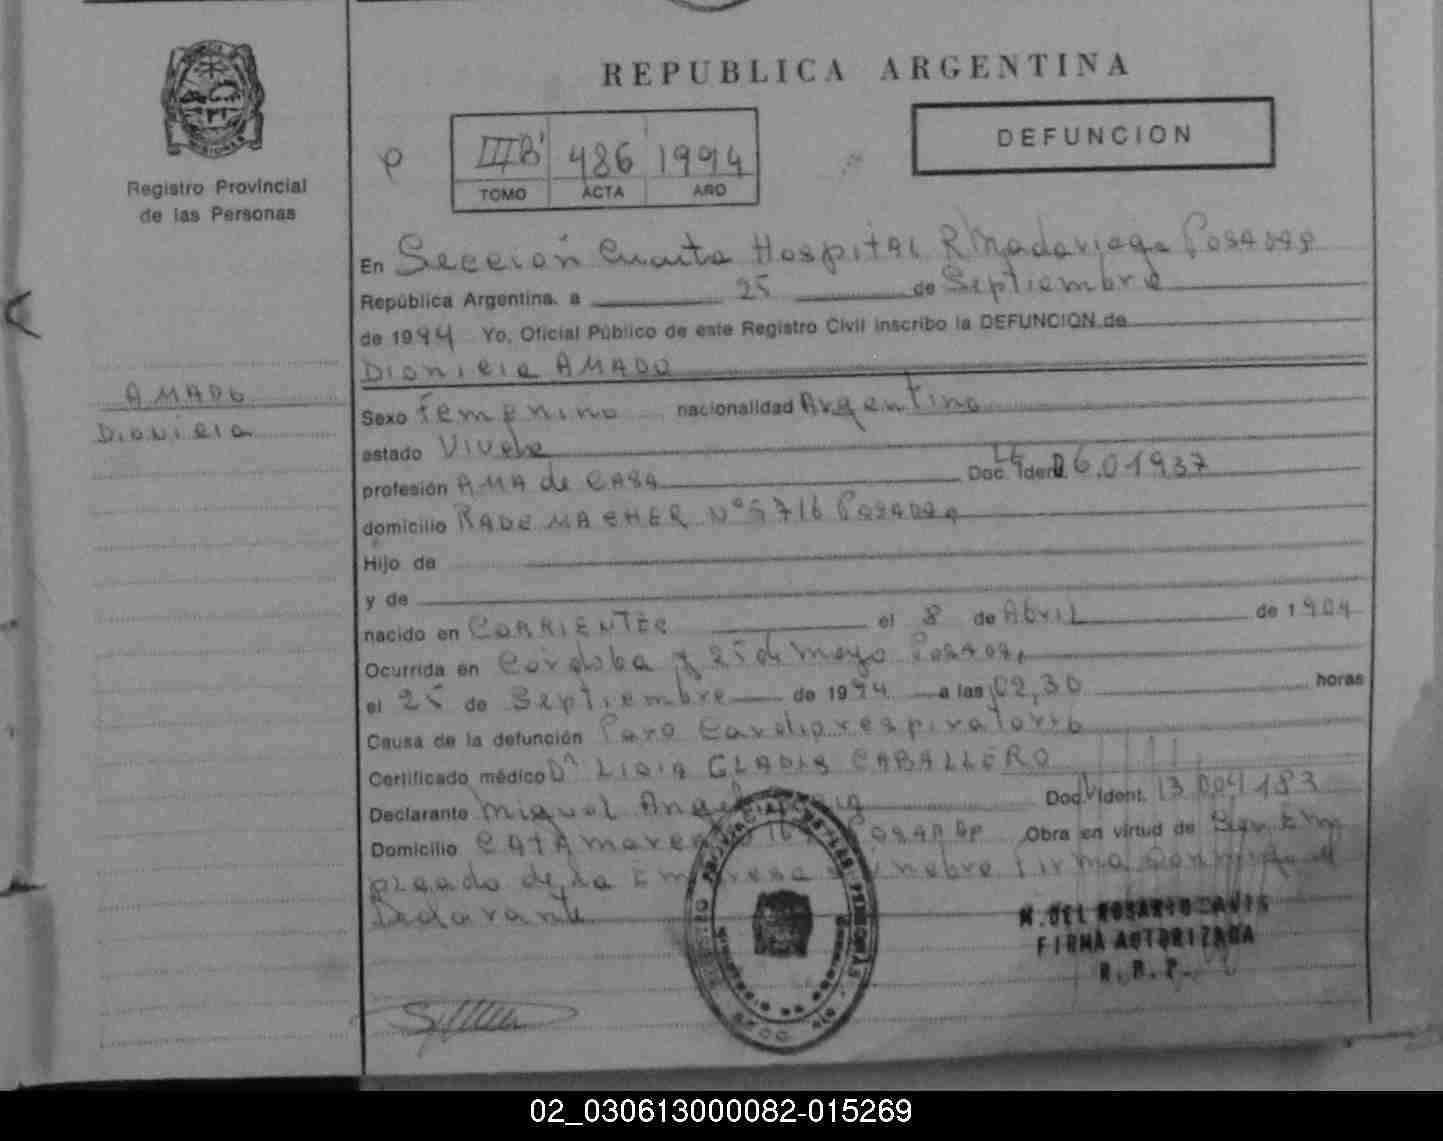 REPUBLICA ARGENTINA
DEFUNCION
Registro Provincial
de las Personas
IIIB' 486 1994
TOMO ACTA AÑO
En Sección Cuarta Hospital R Madariaga Posadas
República Argentina. a 25 de Septiembre
de 1994 Yo, Oficial Público de este Registro Civil inscribo la DEFUNCION de
Dionicia AMADO
AMADO
Dionicia
Sexo Femenino nacionalidad Argentina
estado Viuda
profesión AMA de CASA Doc. Ident. 6.01937
domicilio RADEMACHER Nº 5716 Posadas
Hijo de
y de
nacido en CORRIENTES el 8 de Abril de 1904
Ocurrida en Córdoba y 25 de Mayo Posadas
el 25 de Septiembre de 1994 a las 02,30 horas
Causa de la defunción Paro Cardiorespiratorio
Certificado médico Dª LIDIA GLADIS CABALLERO
Declarante Miguel Angel Doc. Ident. 13.004.183
Domicilio CATAMARCA Posadas Obra en virtud de Ser Em
pleado de la Empresa Funebre Firma
Declarante
M. DEL ROSARIO
FIRMA AUTORIZADA
R. P. P.
02_030613000082-015269